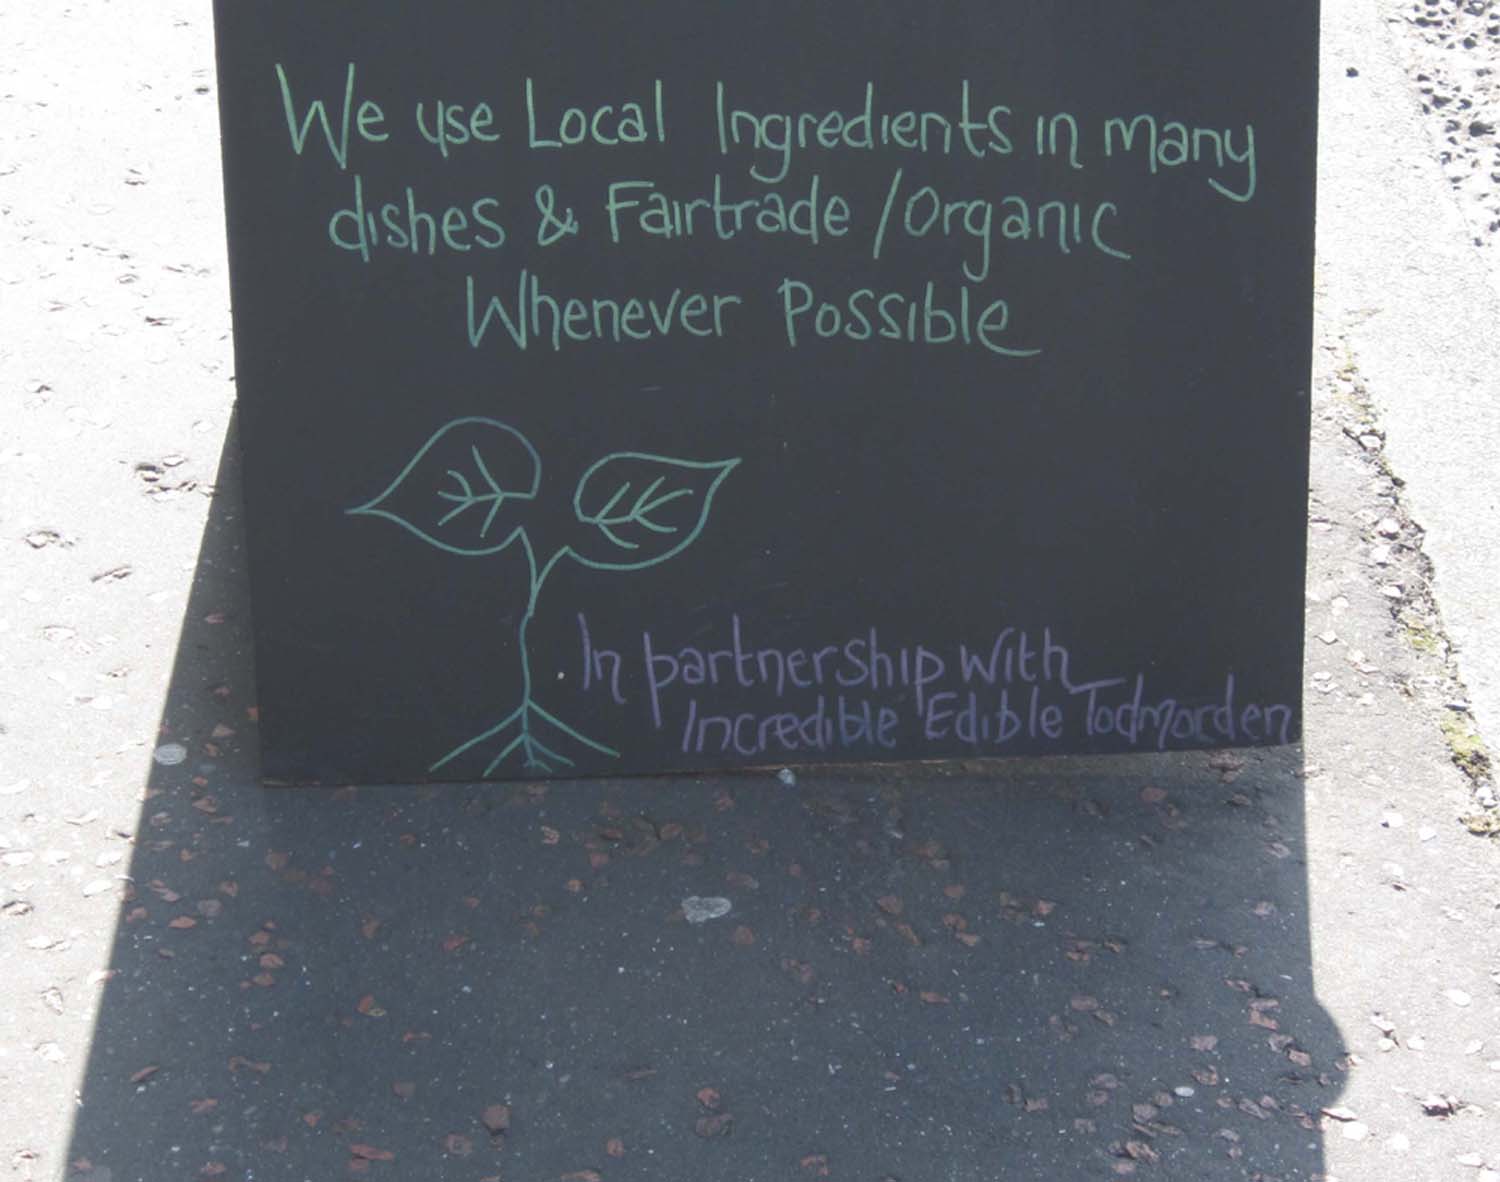 We use Local Ingredients in many
dishes & Fairtrade / Organic
Whenever Possible
In partnership with
Incredible Edible Todmorden